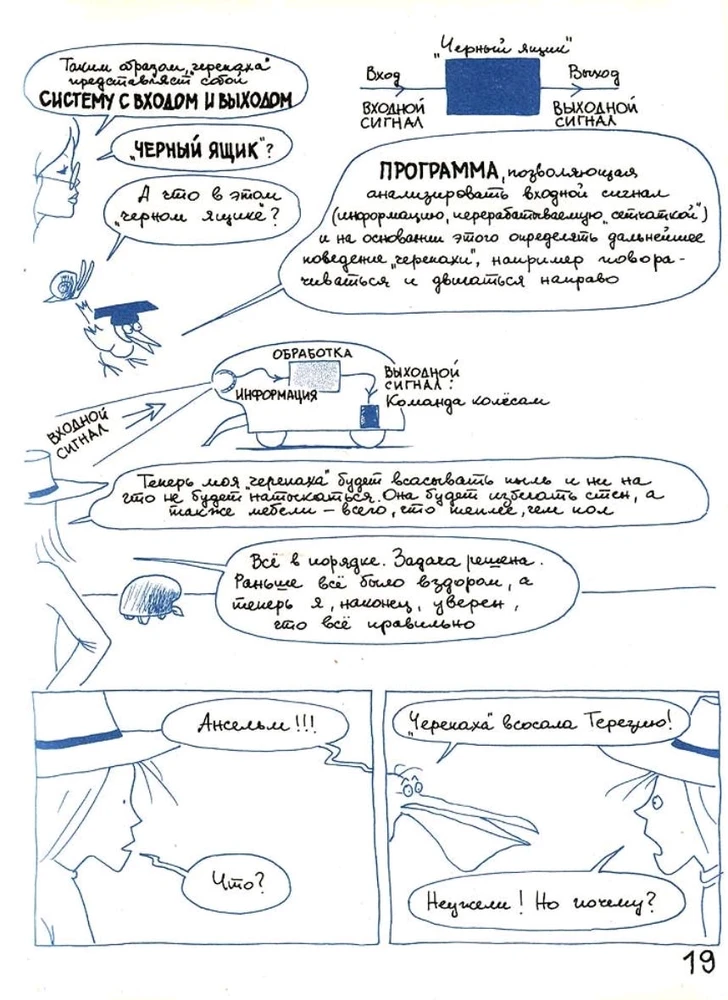 Таким образом, „черепаха"
представляет собой
СИСТЕМУ С ВХОДОМ И ВЫХОДОМ
„Черный ящик"
Вход
Выход
ВХОДНОЙ
СИГНАЛ
ВЫХОДНОЙ
СИГНАЛ
„ЧЕРНЫЙ ЯЩИК"?
А что в этом
„черном ящике"?
ПРОГРАММА, позволяющая
анализировать входной сигнал
(информацию, перерабатываемую „сетчаткой")
и на основании этого определять дальнейшее
поведение „черепахи", например повора-
чиваться и двигаться направо
ОБРАБОТКА
ИНФОРМАЦИЯ
ВЫХОДНОЙ
СИГНАЛ:
Команда колёсам
ВХОДНОЙ
СИГНАЛ
Теперь моя „черепаха" будет всасывать пыль и ни на
что не будет натыкаться. Она будет избегать стен, а
также мебели – всего, что теплее, чем пол
Всё в порядке. Задача решена.
Раньше всё было вздором, а
теперь я, наконец, уверен,
что всё правильно
Ансельм!!!
Что?
„Черепаха" всосала Терезию!
Неужели! Но почему?
19